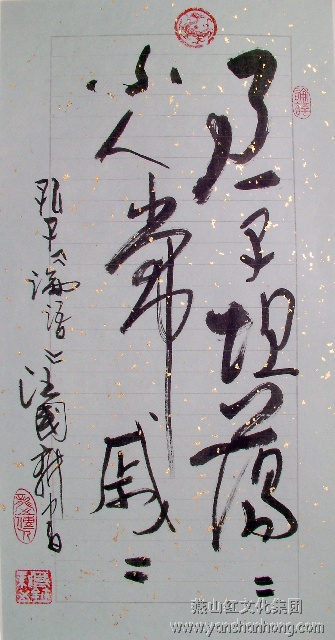 君子坦蕩〻
小人常戚〻
孔子《論語》汪國新書
燕山红文化集团
www.yanshanhong.com